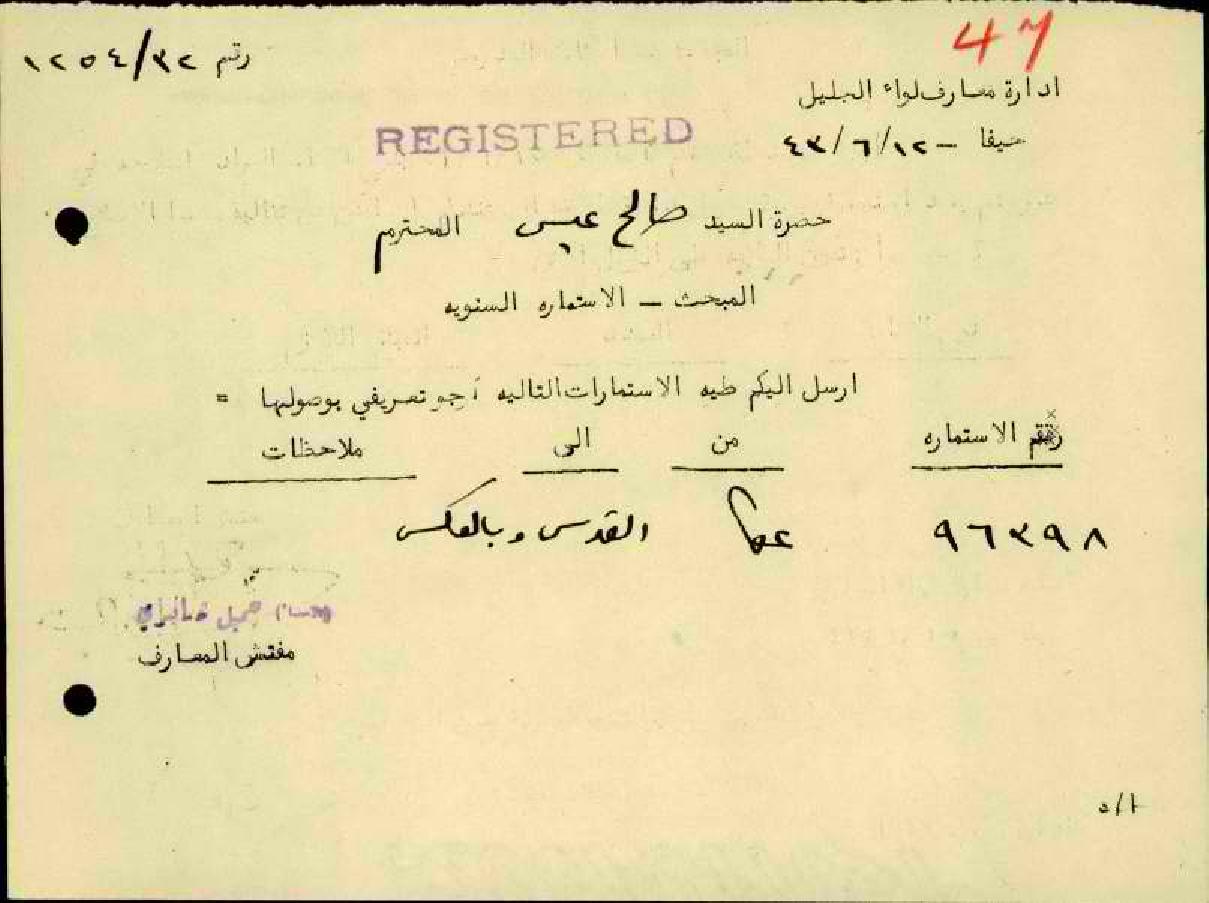 47
رقم ١٢٥٤/٣٢
ادارة معارف لواء الجليل
حيفا – ٤٣/٦/١٢
REGISTERED
حضرة السيد صالح عبس المحترم
المبحث – الاستماره السنويه
ارسل اليكم طيه الاستمارات التاليه أرجو تعريفي بوصولها =
رقم الاستماره من الى ملاحظات
٩٦٣٩٨ عكا القدس وبالعكس
جميل
مفتش المعارف
أ/ه